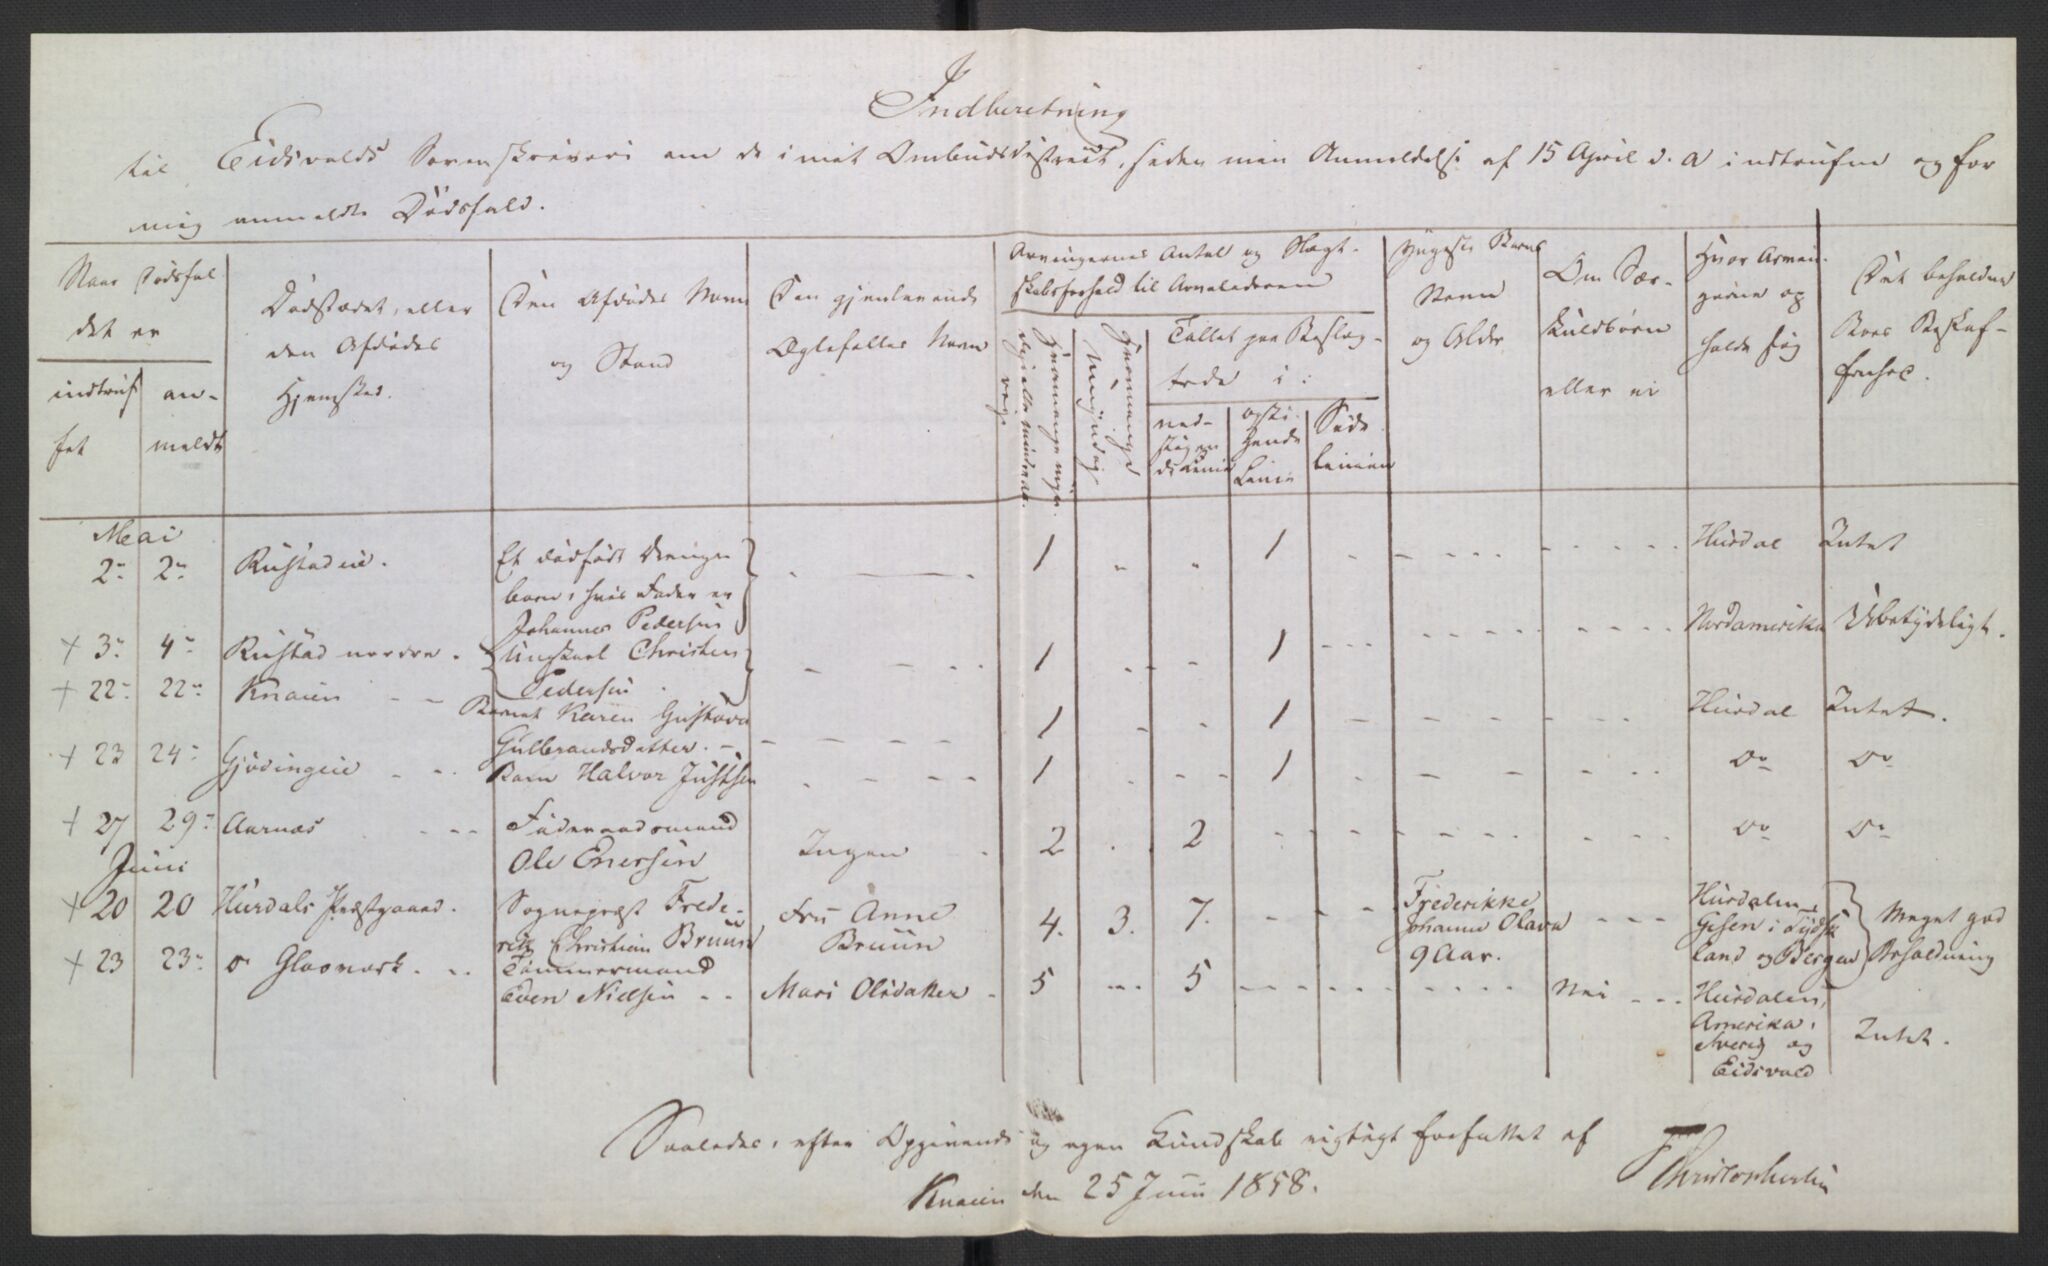 Indberetning
til Eidsvolds Sorenskriveri om de i mit Ombudsdistrict, siden min Anmeldelse af 15 April d. A. indtrufne og for
mig anmeldte Dödsfald.
Naar Dödsfal
det er
indtruf
fet
an-
meldt
Dödsstedet, eller
den Afdödes
Hjemsted.
Den Afdödes Navn
og Stand
Den gjenlevende
Ægtefælles Navn
Arvingernes Antal og Slægt-
skabsforhold til Arveladeren
Hvormange myn-
dige eller mindreaa-
rige
Hvormange
umyndige
Tallet paa Beslæg-
tede i:
ned-
stigen
de Linie
opsti-
gende
Linie
Side
linien
Yngste Barns
Navn
og Alder
Om Sær-
kuldbörn
eller ei
Hvor Arvin-
gerne op
holde sig
Det beholdne
Boes Beskaf-
fenhed.
Mai
2- 2- Rustadeie. Et dödfödt Drenge
barn, hvis Fader er
Johannes Pedersen 1 " " 1 Hurdal Intet
+ 3- 4- Rustad nordre. Ungkarl Christen
Pedersen. 1 1 Nordamerika Ubetydeligt.
+ 22- 22- Knaien Barnet Karen Gustava
Gulbrandsdatter. 1 1 Hurdal Intet.
+ 23 24- Gjödingeie Barn Halvor Justsen 1 1 Do Do
+ 27 29- Aarnæs Föderaadsmand
Ole Enersen Ingen 2 2 Do Do
Juni
+ 20 20 Hurdals Præstgaard. Sognepræst Frede-
rik Christian Bruun Fru Anne
Bruun 4. 3. 7. Frederikke
Johanne Olava
9 Aar. Hurdalen,
Gesen i Tydsk
land og Bergen Meget god
Beholdning
+ 23 23- Do Glasværk. Tömmermand
Even Nielsen Mari Olsdatter 5 5 Nei Hurdalen,
Amerika,
Sverig og
Eidsvold Intet.
Saaledes, efter Opgivende og egen Kundskab rigtigt forfattet af
Knaien den 25 Juni 1858.
Christophersen